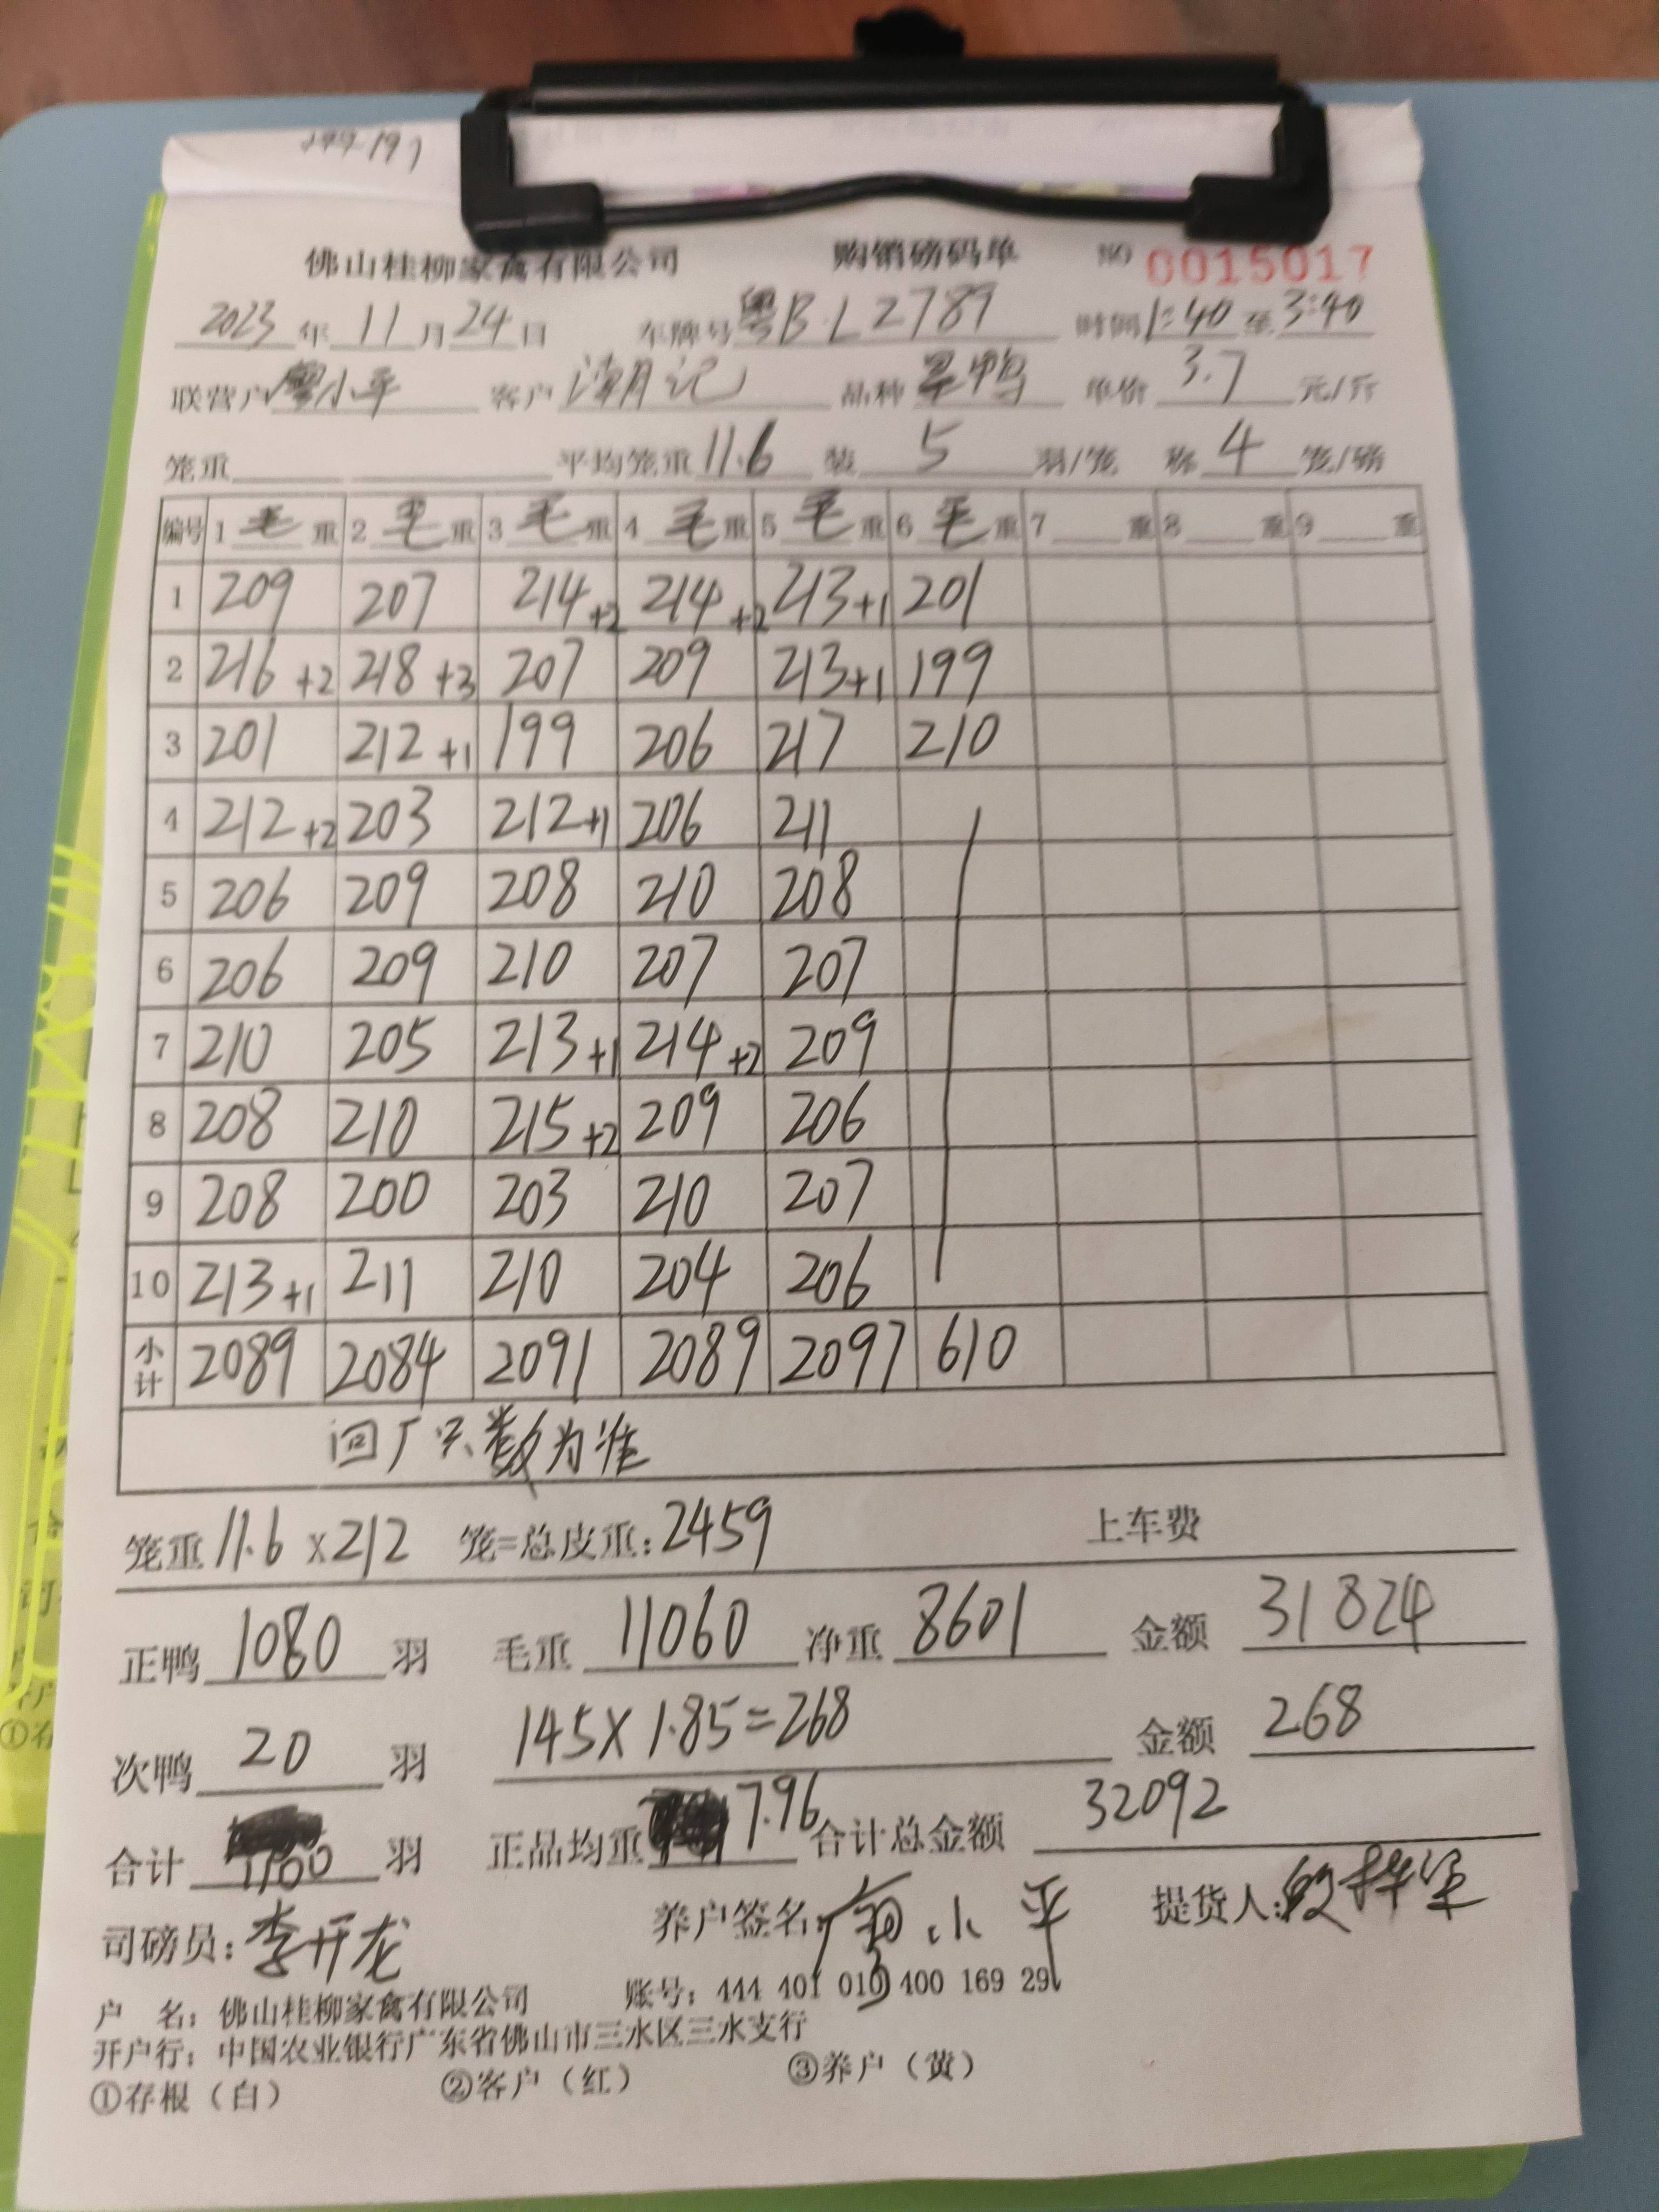 佛山桂柳家禽有限公司 购销磅码单 NO 0015017
2023年11月24日 车牌号 粤B·L2789 时间 1:40 至 3:40
联营户 廖小平 客户 潮记 品种 旱鸭 单价 3.7 元/斤
笼重 平均笼重 11.6 装 5 羽/笼 称 4 笼/磅
编号 1 毛 重 2 毛 重 3 毛 重 4 毛 重 5 毛 重 6 毛 重 7 重 8 重 9 重
1 209 207 214+2 214+2 213+1 201
2 216+2 218+3 207 209 213+1 199
3 201 212+1 199 206 217 210
4 212+2 203 212+1 206 211
5 206 209 208 210 208
6 206 209 210 207 207
7 210 205 213+1 214+2 209
8 208 210 215+2 209 206
9 208 200 203 210 207
10 213+1 211 210 204 206
小计 2089 2084 2091 2089 2097 610
回厂只数为准
笼重 11.6 x212 笼=总皮重: 2459 上车费
正鸭 1080 羽 毛重 11060 净重 8601 金额 31824
次鸭 20 羽 145X1.85=268 金额 268
合计 1100 羽 正品均重 7.96 合计总金额 32092
司磅员: 李开龙 养户签名: 廖小平 提货人:
户 名: 佛山桂柳家禽有限公司 账号: 444 401 010 400 169 29
开户行: 中国农业银行广东省佛山市三水区三水支行
①存根(白) ②客户(红) ③养户(黄)